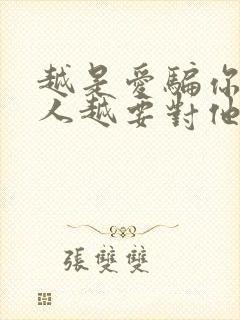 越是愛騙你
人越要對他
張雙雙